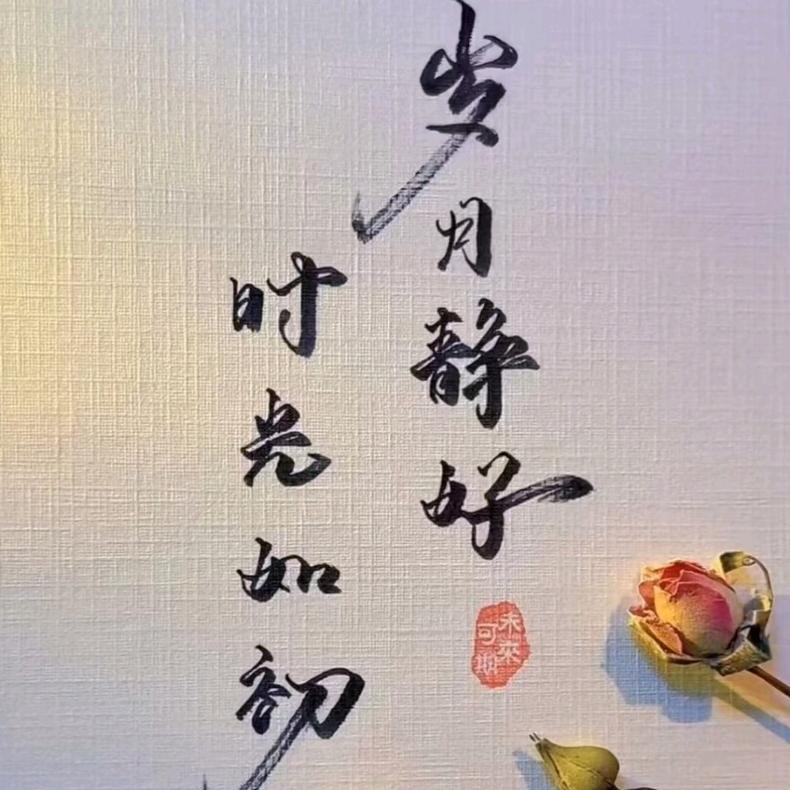 岁月静好
时光如初
未来可期